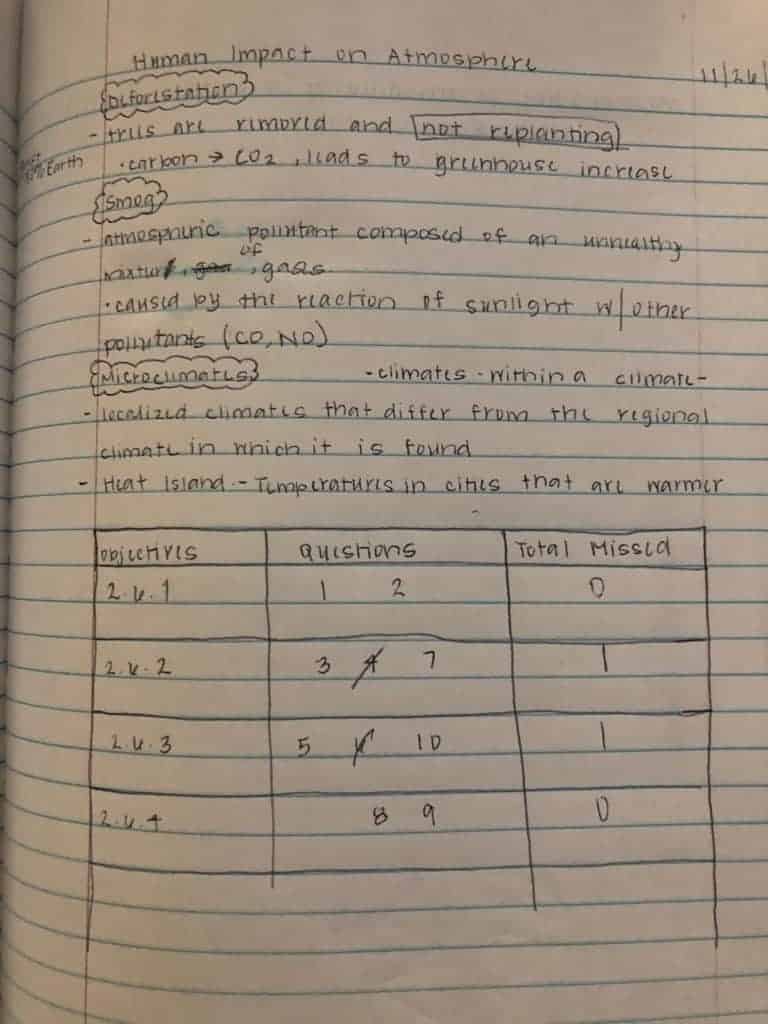 Human Impact on Atmosphere
11/26/
Deforestation
- trees are removed and not replanting
Earth
• carbon → CO2, leads to greenhouse increase
Smog
- atmospheric pollutant composed of an unhealthy
of
mixture, gases
• caused by the reaction of sunlight w/ other
pollutants (CO, NO)
Microclimates - climates - within a climate -
- localized climates that differ from the regional
climate in which it is found
- Heat Island - Temperatures in cities that are warmer
objectives Questions Total Missed
2.6.1 1 2 0
2.6.2 3 4 7 1
2.6.3 5 6 10 1
2.6.4 8 9 0